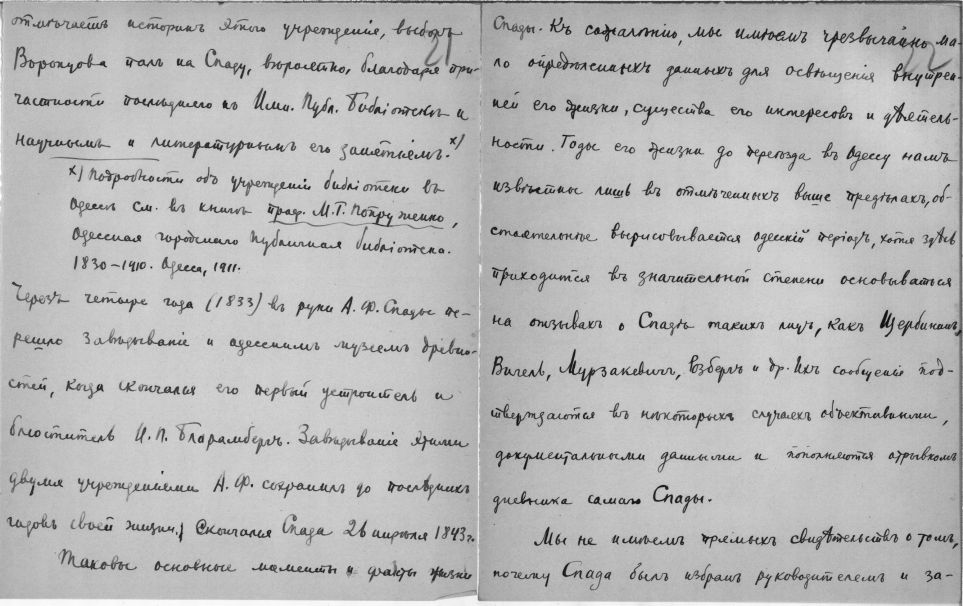 отмѣчаетъ историкъ этого учрежденія, выборъ
21
Воронцова палъ на Спаду, вѣроятно, благодаря при-
частности послѣдняго къ Имп. Публ. Библіотекѣ и
научнымъ и литературнымъ его занятіямъ. х)
х) Подробности объ учрежденіи библіотеки въ
Одессѣ см. въ книгѣ проф. М.Г. Попруженко,
Одесская городская публичная библіотека.
1830-1910. Одесса, 1911.
Черезъ четыре года (1833) въ руки А. Ф. Спады пе-
решло завѣдываніе и одесскимъ музеемъ древно-
стей, когда скончался его первый устроитель и
блюститель И. П. Бларамбергъ. Завѣдываніе этими
двумя учрежденіями А. Ф. сохранилъ до послѣднихъ
годовъ своей жизни. Скончался Спада 26 апрѣля 1843 г.
Таковы основные моменты и факты жизни
Спады. Къ сожалѣнію, мы имѣемъ чрезвычайно ма-
22
ло опредѣленныхъ данныхъ для освѣщенія внутрен-
ней его жизни, существа его интересовъ и дѣятель-
ности. Годы его жизни до переѣзда въ Одессу намъ
извѣстны лишь въ отмѣченныхъ выше предѣлахъ, об-
стоятельнѣе вырисовывается одесскій періодъ, хотя здѣсь
приходится въ значительной степени основываться
на отзывахъ о Спадѣ такихъ лицъ, какъ Щербининъ,
Вигель, Мурзакевичъ, и др. Ихъ сообщенія под-
тверждаются въ нѣкоторыхъ случаяхъ объективными,
документальными данными и пополняются отрывкомъ
дневника самаго Спады.
Мы не имѣемъ прямыхъ свидѣтельствъ о томъ,
почему Спада былъ избранъ руководителемъ и за-